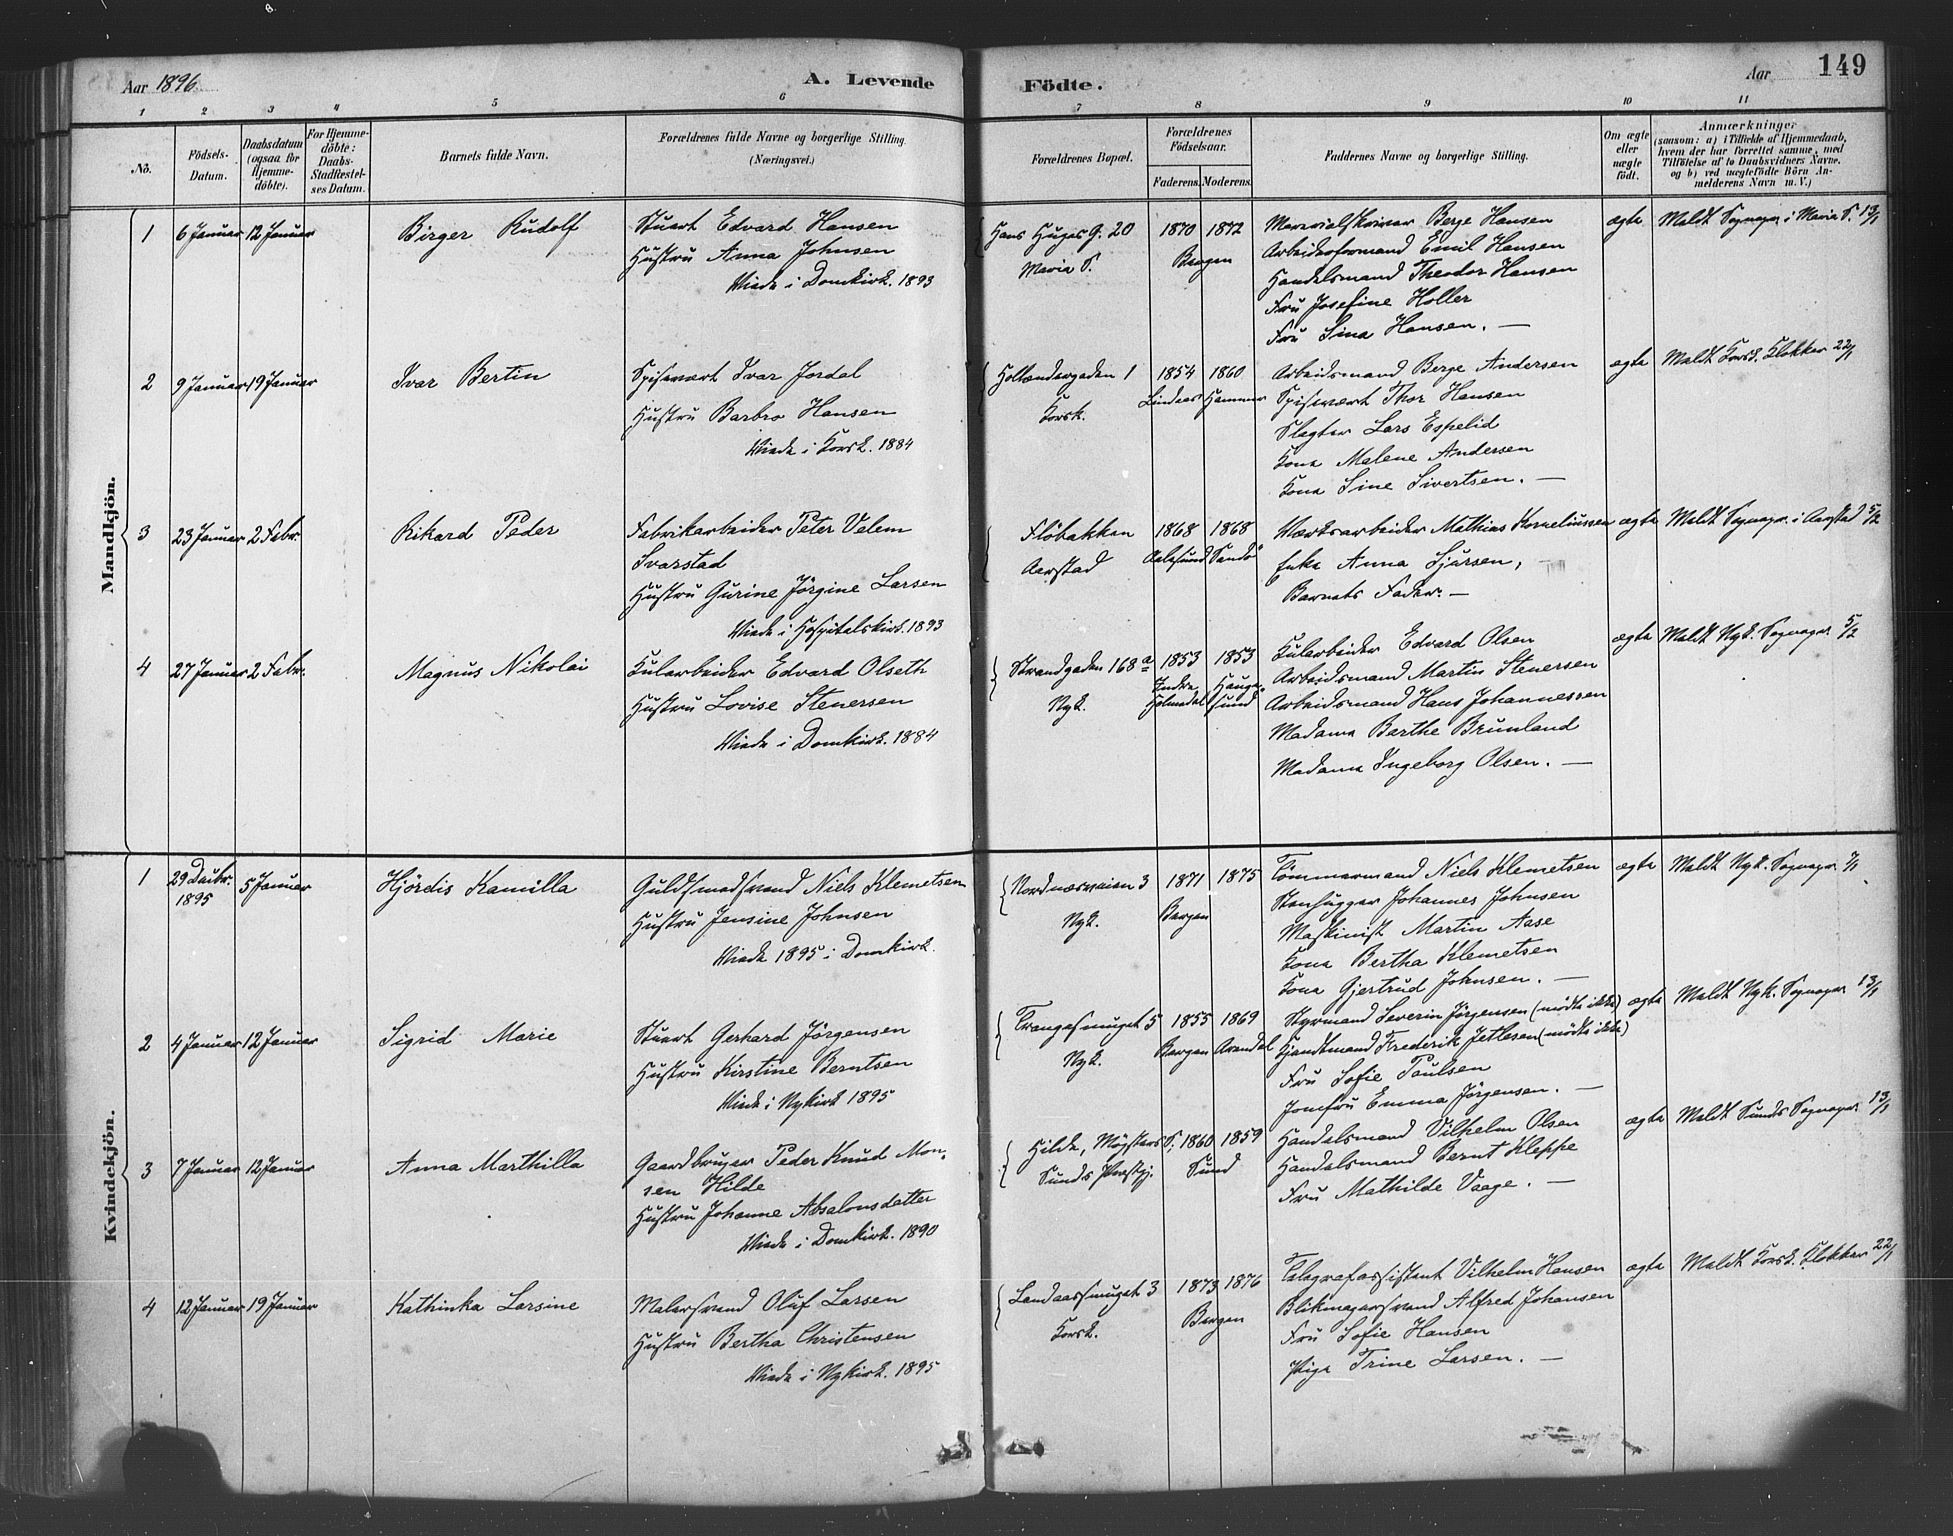 Aar 1896
A. Levende
Födte.
Aar
149
1
2
3
4
5
6
7
8
9
10
11
No.
Födsels-
Datum.
Daabsdatum
(ogsaa for
Hjemme-
döbte).
For Hjemme-
döbte:
Daabs-
Stadfæstel-
ses Datum.
Barnets fulde Navn.
Forældrenes fulde Navne og borgerlige Stilling.
(Næringsvei.)
Forældrenes Bopæl.
Forældrenes
Födselsaar.
Faderens.
Moderens.
Faddernes Navne og borgerlige Stilling.
Om ægte
eller
uægte
födt.
Anmærkninger
(saasom: a) i Tilfælde af Hjemmedaab,
hvem der har forrettet samme, med
Tilföielse af to Daabsvidners Navne.
og b) ved uægtefödte Börn An-
melderens Navn m. V.)
Mandkjön.
1
6 Januar
12 Januar
Birger Rudolf
Stuert Edvard Hansen
Hustru Anna Johnsen
Viede i Domkirk. 1893
Hans Huges G. 20
Maria S.
1870
1872
Bergen
Arbeidsformand Emil Hansen
Handelsmand Theodor Hansen
Fru Josefine Holler
Fru Sina Hansen. —
ægte
Meldt Sognepr. i Maria S. 13/1
2
9 Januar
19 Januar
Ivar Bertin
Spisevært Ivar Jordal
Hustru Barbro Hansen
Viede i Korsk. 1884
Hollændergaden 1
Korsk.
1854
1860
Lindaas
Hammer
Arbeidsmand Berge Andersen
Spisevært Thor Hansen
Slagter Lars Espelid
Kone Malene Andersen
Kone Sine Sivertsen. —
ægte
Meldt Korsk. Klokker 22/1
3
23 Januar
2 Febr.
Rikard Peder
Fabrikarbeider Peter Velem
Svarstad
Hustru Gurine Jörgine Larsen
Viede i Hospitalskirk. 1893
Flöbakken
Aarstad
1868
1868
Aalesund
Sandö
Værksarbeider Mathias Korneliussen
Enke Anna Sjursen,
Barnets Fader. —
ægte
Meldt Sognepr. i Aarstad 5/2
4
27 Januar
2 Febr.
Magnus Nikolai
Kularbeider Edvard Olseth
Hustru Lovise Stenersen
Viede i Domkirk. 1884
Strandgaden 168 a
Nyk.
1853
1853
Indre
Holmedal
Hauge-
sund
Kularbeider Edvard Olsen
Arbeidsmand Martin Stenersen
Arbeidsmand Hans Johannessen
Madame Barthe Brunland
Madame Ingeborg Olsen. —
ægte
Meldt Nyk. Sognepr. 5/2
Kvindekjön.
1
29 Decbr.
1895
5 Januar
Hjördis Kamilla
Guldsmedsvend Niels Klemetsen
Hustru Jensine Johnsen
Viede 1895 i Domkirk.
Nordnæsveien 3
Nyk.
1871
1875
Bergen
Tömmermand Niels Klemetsen
Stenhugger Johannes Johnsen
Maskinist Martin Aase
Kone Bertha Klemetsen
Kone Gjertrud Johnsen. —
ægte
Meldt Nyk. Sognepr.
2
4 Januar
12 Januar
Sigrid Marie
Stuert Gerhard Jörgensen
Hustru Kirstine Berntsen
Viede i Nykirk 1895
Trangesmuget 5
Nyk.
1855
1869
Bergen
Arendal
Styrmand Severin Jörgensen (mödte ikke)
Hjendtmand Frederik Jetlesen (mödte ikke)
Fru Sofie Paulsen
Jomfru Emma Jörgensen. —
ægte
Meldt Nyk. Sognepr. 13/1
3
7 Januar
12 Januar
Anna Marthilla
Gaardbruger Peder Knud Mon-
sen Hilde
Hustru Johanne Absalonsdatter
Viede i Domkirk. 1890
Hilde, Møgsters S.
Sunds Prstgj.
1860
1859
Sund
Handelsmand Vilhelm Olsen
Handelsmand Bernt Kleppe
Fru Mathilde Vaage. —
ægte
Meldt Sunds Sognepr. 13/1
4
12 Januar
19 Januar
Kathinka Larsine
Malersvend Oluf Larsen
Hustru Bertha Christensen
Viede i Nykirk. 1895
Landaassmuget 3
Korsk.
1873
1876
Bergen
Telegrafassistent Vilhelm Hansen
Blikmagersvend Alfred Johansen
Fru Sofie Hansen
Pige Trine Larsen. —
ægte
Meldt Korsk. Klokker 22/1